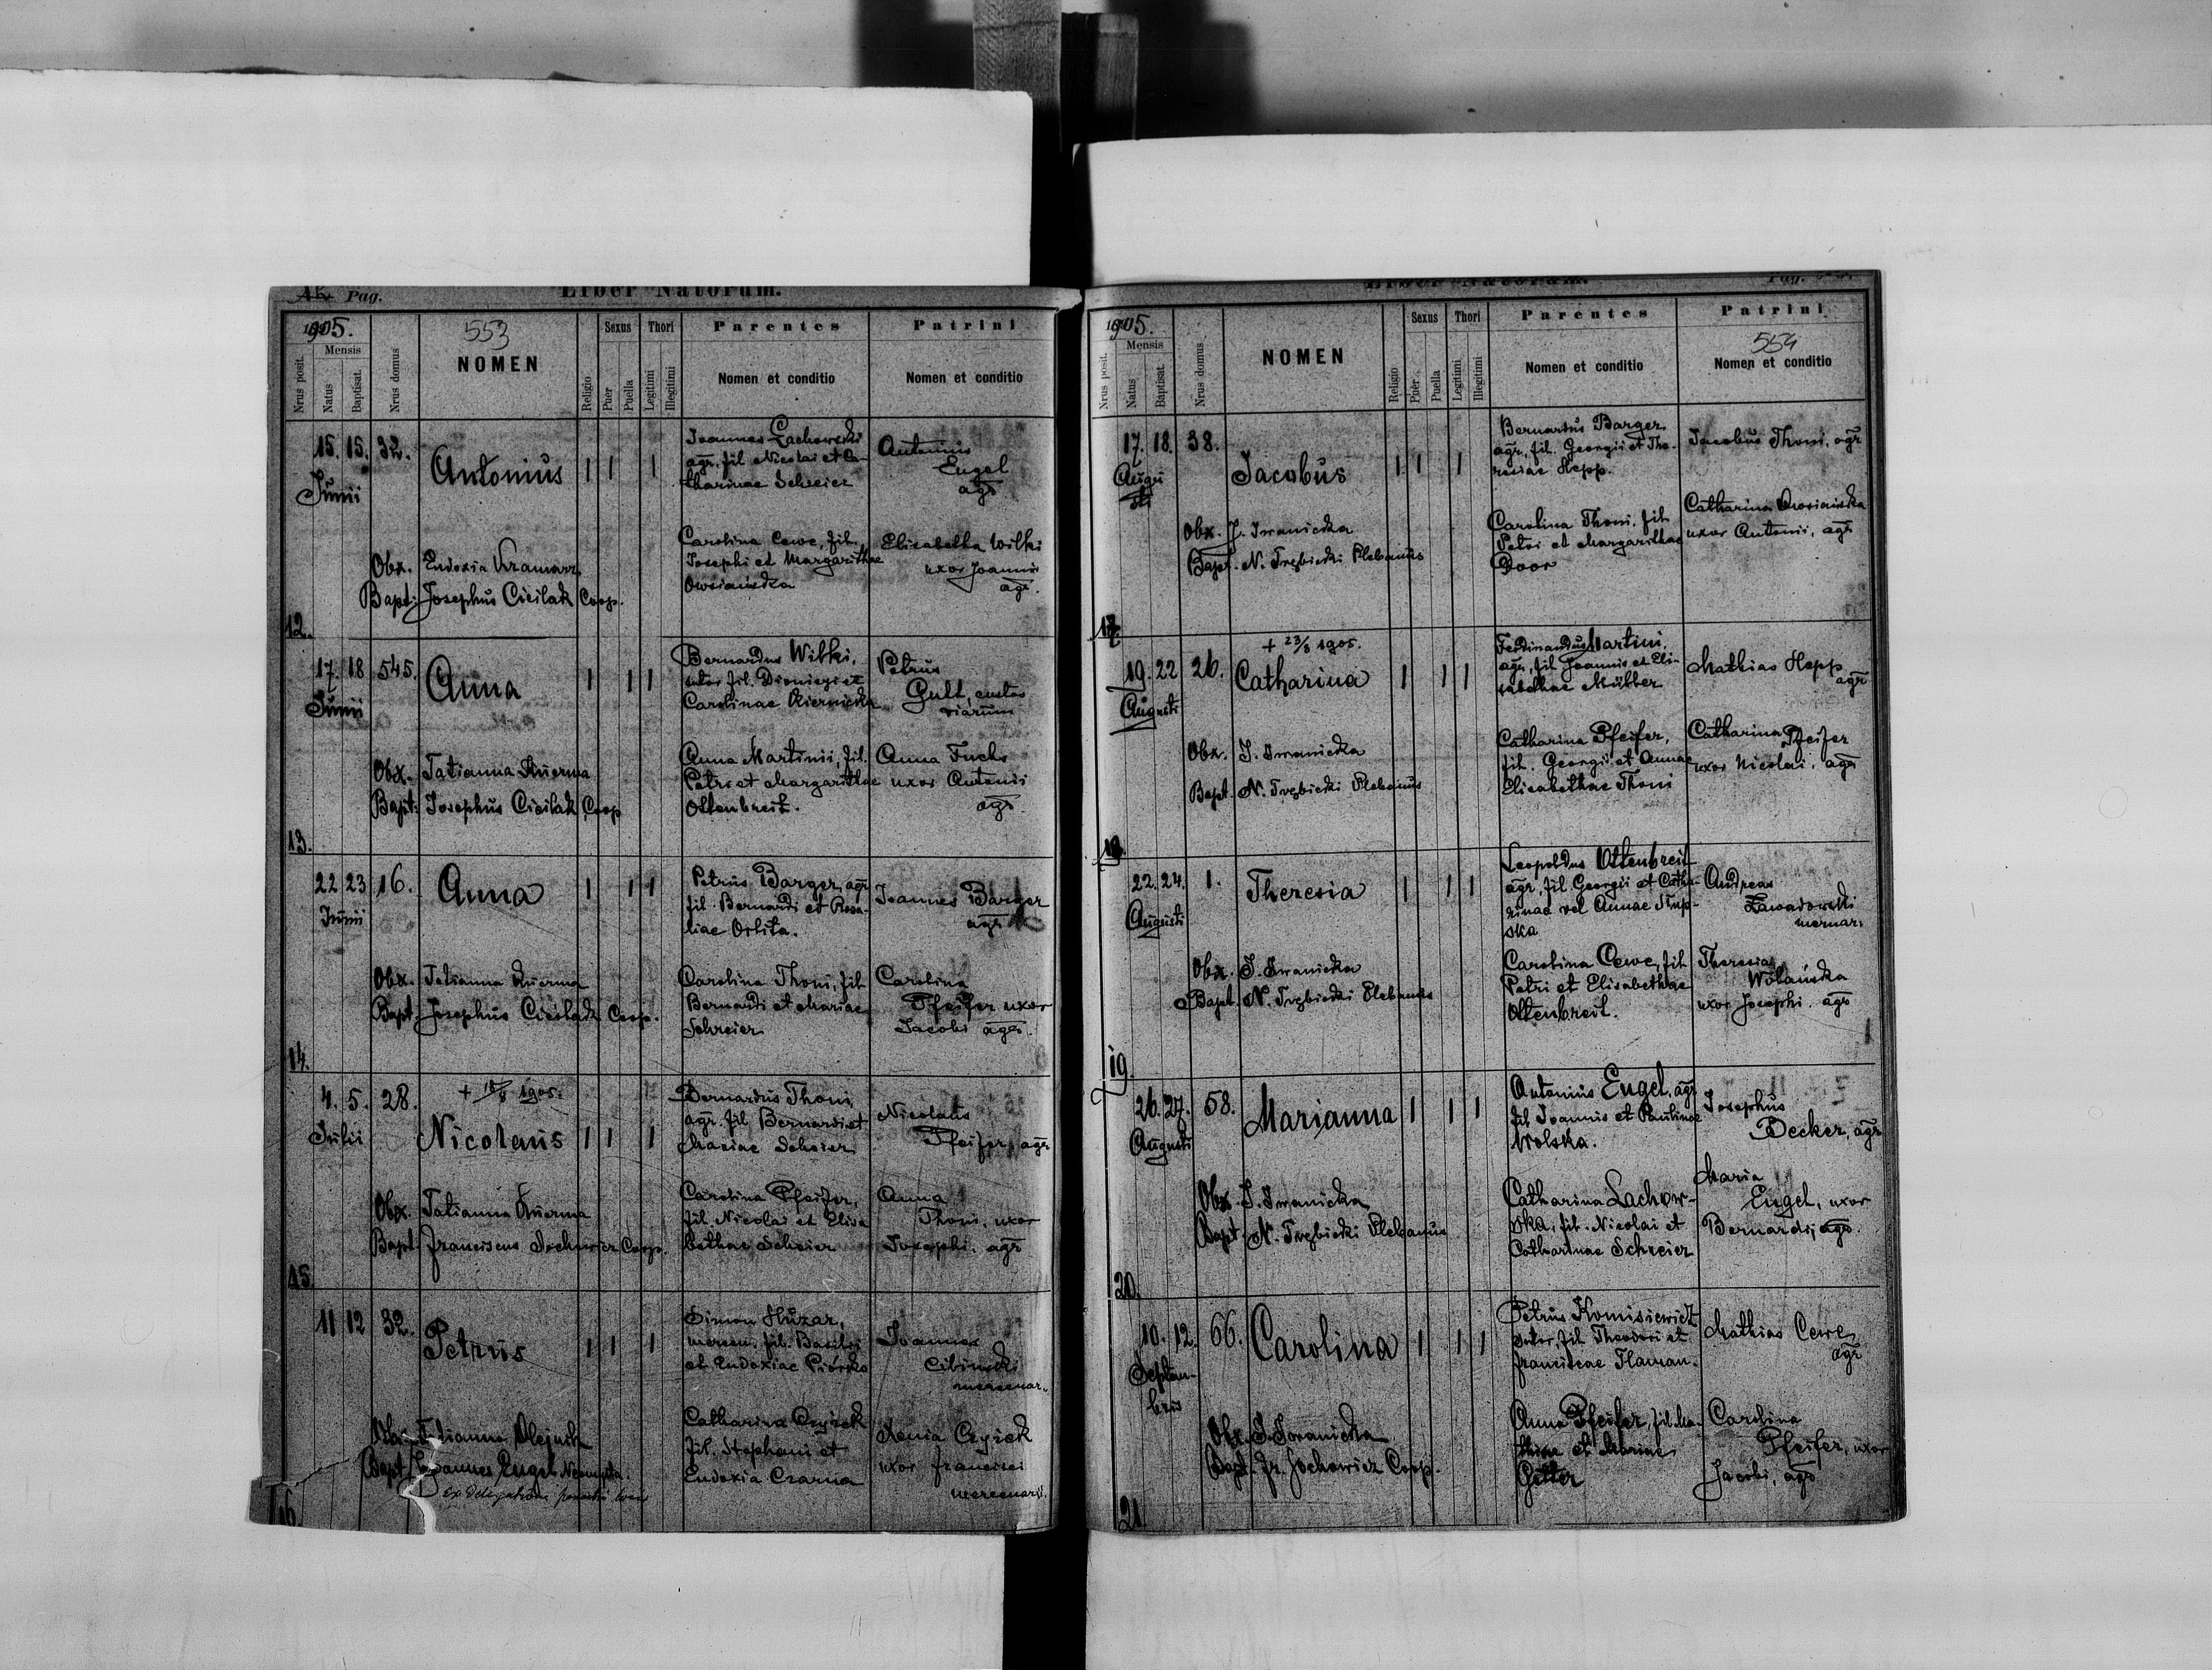 Pag. Liber Natorum.
1905. 553
Nrus posit. Mensis Natus Baptisat. Nrus domus NOMEN Religio Sexus Puer Puella Thori Legitimi Illegitimi Parentes Nomen et conditio Patrini Nomen et conditio
15. 15. 32.
Junii
Antonius
Obx. Eudoxia Kramarz
Bapt: Josephus Cieilak Coop.
Joannes Lachowski
agr. fil Nicolai et Ca-
tharinae Schreier
Carolina Cewe, fil.
Josephi et Margarithae
Owsiańska
Antonius
Engel
agr
Elisabetha Wilki
uxor Joannis
agr.
12.
17. 18 545.
Junii
Anna
Obx. Tatianna Kuerma
Bapt: Josephus Cieilak Coop
Bernardus Wilki,
sutor fil. Dionisyi et
Carolinae Kiernicka
Anna Martinii, fil.
Petri et Margarithae
Ottenbreit.
Petrus
Gult, custos
viarum
Anna Fuchs
uxor Antonii
agr
13.
22 23 16.
Junii
Anna
Obx. Tatianna Kuerma
Bapt. Josephus Cieilak Coop.
Petrus Barger, agr
fil. Bernardi et Rosa-
liae Orlita.
Carolina Thoni, fil
Bernardi et Mariae
Schreier
Joannes Barger
agr
Carolina
Pfeifer uxor
Jacobi agr.
14.
4. 5. 28.
Julii
+ 1905.
Nicolaus
Obx. Tatianna Kuerma
Bapt Franciscus Jochowicz Coop.
Bernardus Thoni,
agr. fil Bernardi et
Mariae Schreier
Carolina Pfeifer,
fil. Nicolai et Elisa
bethae Schreier
Nicolaus
Pfeifer, agr
Anna
Thoni, uxor
Josephi. agr
15.
11 12 32.
Petrus
Obx. Tatianna Olejnik
Bapt. Joannes Engel
Ex delegatione
Simon Huzar,
mercen. fil. Basilii
et Eudoxiae Piórko
Catharina Czyżek
fil. Stephani et
Eudoxia Czarna
Joannes
Cibinski
mercenar.
Xenia Czyżek
uxor Francisci
mercenarii.
16.
Liber Natorum. Pag.
1905.
Nrus posit. Mensis Natus Baptisat. Nrus domus NOMEN Religio Sexus Puer Puella Thori Legitimi Illegitimi Parentes Nomen et conditio Patrini 554 Nomen et conditio
17. 18. 38.
Augu
sti
Jacobus
Obx. J. Iwanicka
Bapt. N. Trzbicki Plebanus
Bernardus Barger
agr. fil. Georgii et The-
resiae Hepp.
Carolina Thoni. fil
Petri et Margarithae
Door
Jacobus Thoni, agr
Catharina Owsiańska
uxor Antonii, agr
17.
19. 22 26.
Augusti
+ 23/8 1905.
Catharina
Obx. J. Iwanicka
Bapt. N. Trzbicki Plebanus
Ferdinandus Martini,
agr, fil Joannis et Eli-
sabethae Müller
Catharina Pfeifer,
fil. Georgii et Annae
Elisabethae Thoni
Mathias Hepp
agr
Catharina Pfeifer
uxor Nicolai. agr
18.
22. 24. 1.
Augusti
Theresia
Obx. J. Iwanicka
Bapt. N. Trzbicki Plebanus
Leopoldus Ottenbreit
agr, fil. Georgii et Catha-
rinae vel Annae Stup-
ska
Carolina Cewe, fil
Petri et Elisabethae
Ottenbreit.
Andreas
Zawadowski
Theresia
Wolańska
uxor Josephi. agr
19.
26. 27. 58.
Augusti
Marianna
Obx. J. Iwanicka
Bapt. N. Trzbicki Plebanus
Antonius Engel, agr
fil Joannis et Paulinae
Wolska.
Catharina Lachow-
ska, fil. Nicolai et
Catharinae Schreier
Josephus
Becker, agr
Maria
Engel, uxor
Bernardi, agr.
20.
10. 12. 66.
Septem-
bris
Carolina
Obx. J. Iwanicka
Bapt. Fr. Jochowicz Coop.
Petrus Komisiewicz
sutor, fil Theodori et
Franciscae Flaman.
Anna Pfeifer, fil. Ma-
thiae et Mariae
Getter
Mathias Cewe,
agr
Carolina
Pfeifer, uxor
Jacobi, agr
21